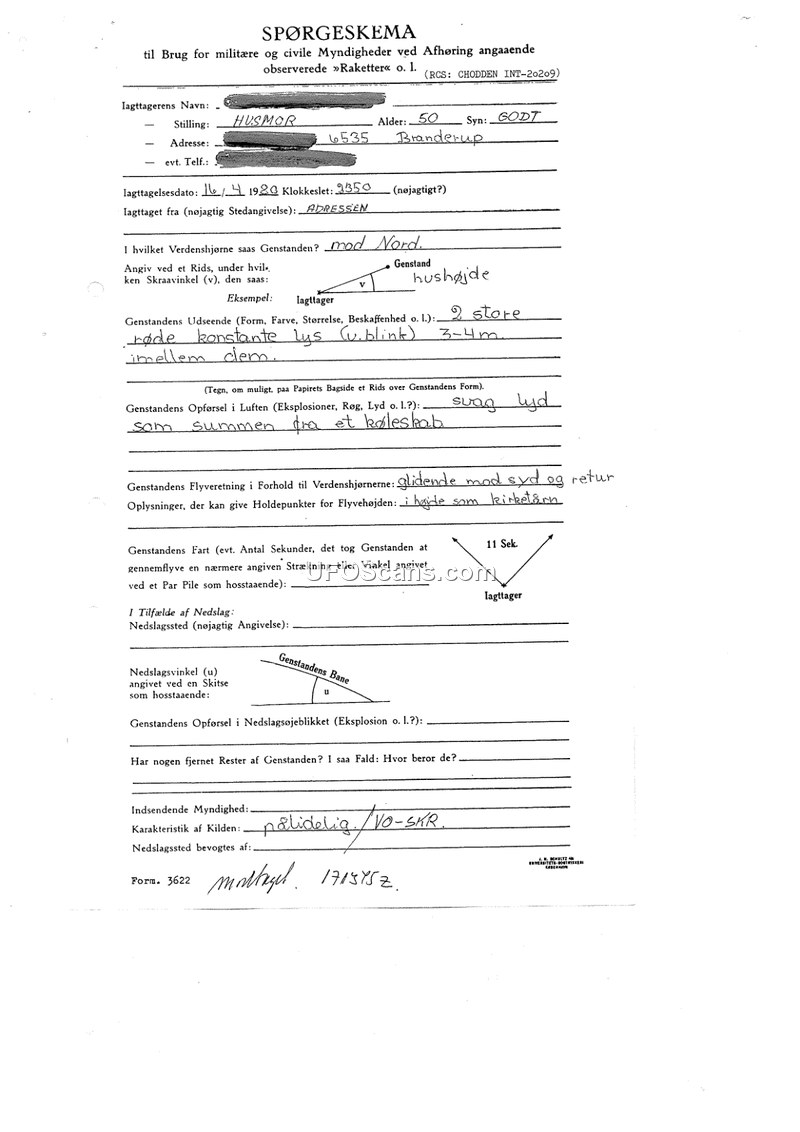 SPØRGESKEMA
til Brug for militære og civile Myndigheder ved Afhøring angaaende
observerede »Raketter« o. l. (RCS: CHODDEN INT-20209)
Iagttagerens Navn:
— Stilling: HUSMOR Alder: 50 Syn: GODT
— Adresse: 6535 Branderup
— evt. Telf.:
Iagttagelsesdato: 16/4 1980 Klokkeslet: (nøjagtigt?)
Iagttaget fra (nøjagtig Stedangivelse): ADRESSEN
I hvilket Verdenshjørne saas Genstanden? mod Nord.
Angiv ved et Rids, under hvil-
ken Skraavinkel (v), den saas:
Eksempel:
Genstand
v
Iagttager
hushøjde
Genstandens Udseende (Form, Farve, Størrelse, Beskaffenhed o. l.): 2 store
røde konstante lys (u.blink) 3-4 m.
imellem dem.
(Tegn, om muligt, paa Papirets Bagside et Rids over Genstandens Form).
Genstandens Opførsel i Luften (Eksplosioner, Røg, Lyd o. l.?): svag lyd
som summen fra et køleskab
Genstandens Flyveretning i Forhold til Verdenshjørnerne: glidende mod syd og retur
Oplysninger, der kan give Holdepunkter for Flyvehøjden: i højde som kirketårn
Genstandens Fart (evt. Antal Sekunder, det tog Genstanden at
gennemflyve en nærmere angiven Strækning eller Vinkel angivet
ved et Par Pile som hosstaaende):
11 Sek.
Iagttager
UFOScans.com
I Tilfælde af Nedslag:
Nedslagssted (nøjagtig Angivelse):
Nedslagsvinkel (u)
angivet ved en Skitse
som hosstaaende:
Genstandens Bane
u
Genstandens Opførsel i Nedslagsøjeblikket (Eksplosion o. l.?):
Har nogen fjernet Rester af Genstanden? I saa Fald: Hvor beror de?
Indsendende Myndighed:
Karakteristik af Kilden: pålidelig. / VO-SKR.
Nedslagssted bevogtes af:
J. H. SCHULTZ A/S
UNIVERSITETS-BOGTRYKKERI
KØBENHAVN
Form. 3622 Modtaget.